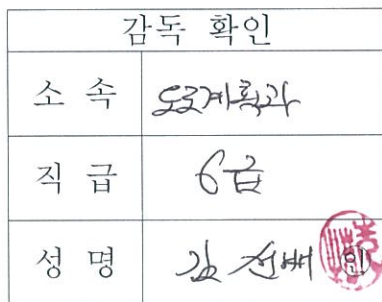 감독 확인
소 속 도로계획과
직 급 6급
성 명 김선배 인